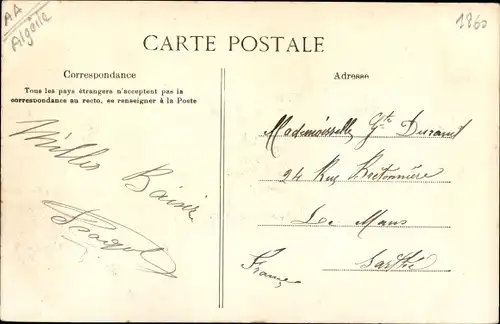 AA
Algérie
1860
CARTE POSTALE
Correspondance
Tous les pays étrangers n'acceptent pas la
correspondance au recto, se renseigner à la Poste
Milles Baisir
Adresse
Mademoiselle Gte Durant
94 Rue Bretonnière
Le Mans
Sarthe
France